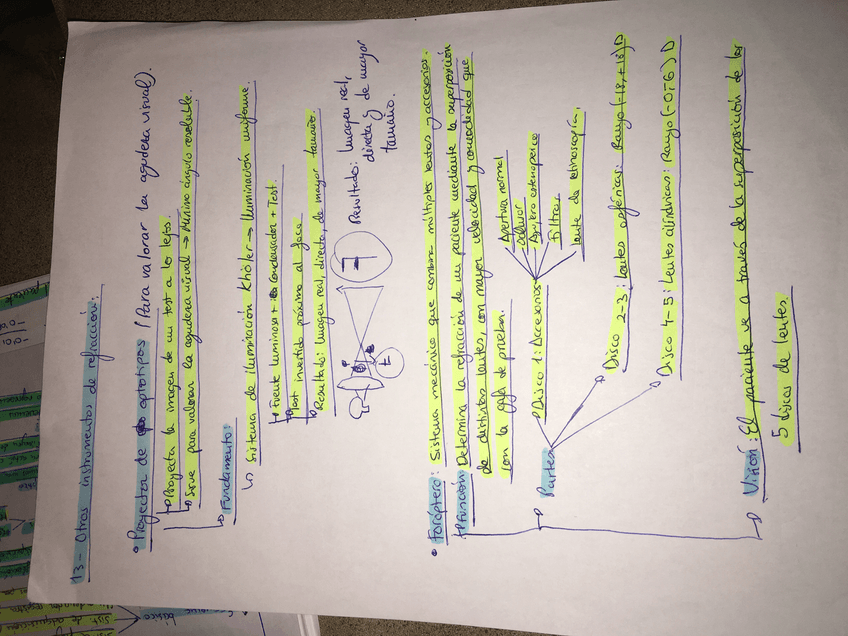 13- Otros instrumentos de refracción:
• Proyector de optotipos (Para valorar la agudeza visual).
↳ Proyecta la imagen de un test a lo lejos.
↳ Sirve para valorar la agudeza visual → Mínimo ángulo resoluble.
↳ Fundamento:
↳ Sistema de iluminación Khöler → Iluminación uniforme.
↳ Fuente luminosa + Condensador + Test.
↳ Test invertido próximo al foco
↳ Resultado: Imagen real, directa, de mayor tamaño.
Resultado: Imagen real,
directa y de mayor
tamaño.
• Foróptero: Sistema mecánico que combina múltiples lentes y accesorios.
↳ Función: Determina la refracción de un paciente mediante la superposición
de distintas lentes, con mayor velocidad y comodidad que
con la gafa de prueba.
↳ Partes
Disco 1: Accesorios
Apertura normal
Oclusor
Agujero estenopeico
Filtros
Lente de retinoscopía.
Disco 2-3: Lentes esféricas: Rango (-18, +18) D
Disco 4-5: Lentes cilíndricas: Rango (-0, 6) D
↳ Visión: El paciente ve a través de la superposición de los
5 discos de lentes.